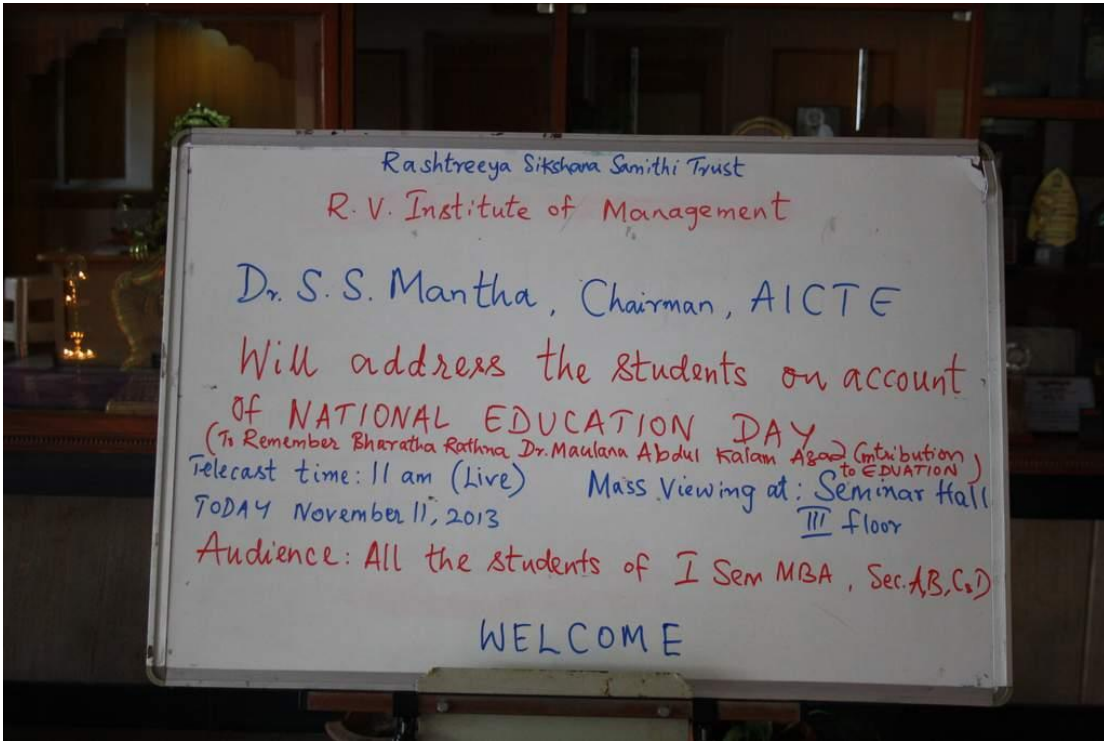 Rashtreeya Sikshana Samithi Trust
R. V. Institute of Management
Dr. S. S. Mantha, Chairman, AICTE
Will address the students on account
of NATIONAL EDUCATION DAY
(To Remember Bharatha Rathna Dr. Maulana Abdul Kalam Azad Contribution
to EDUATION)
Telecast time: 11 am (Live) Mass Viewing at: Seminar Hall
TODAY November 11, 2013 III floor
Audience: All the students of I Sem MBA, Sec. A, B, C, D
WELCOME